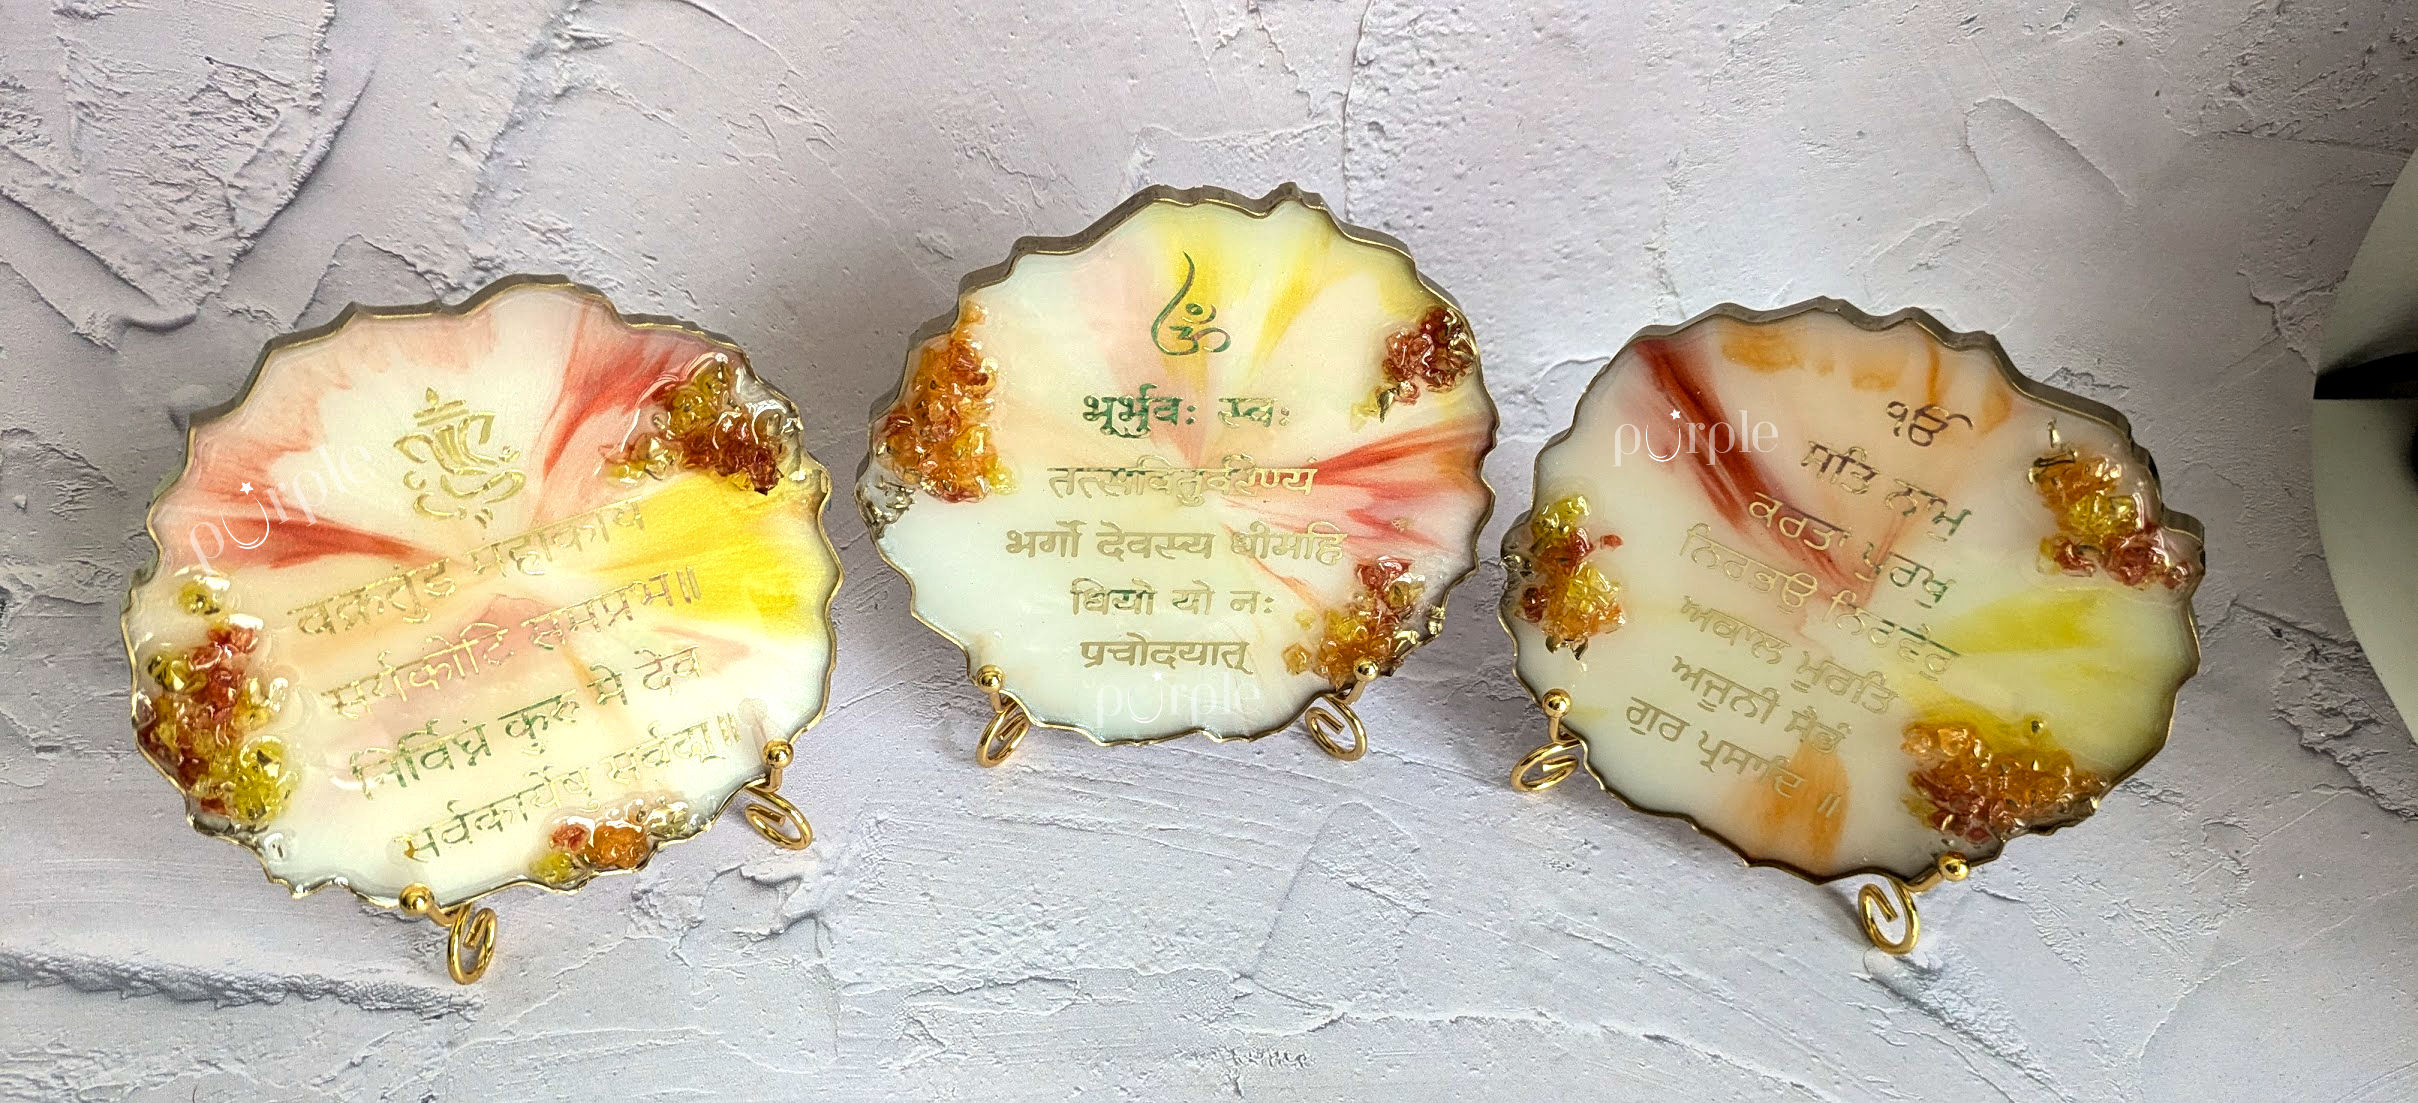 वक्रतुंड महाकाय
सूर्यकोटि समप्रभ॥
निर्विघ्नं कुरु मे देव
सर्वकार्येषु सर्वदा॥
purple
ॐ
भूर्भुवः स्वः
तत्सवितुर्वरेण्यं
भर्गो देवस्य धीमहि
धियो यो नः
प्रचोदयात्
purple
ੴ
ਸਤਿ ਨਾਮੁ
ਕਰਤਾ ਪੁਰਖੁ
ਨਿਰਭਉ ਨਿਰਵੈਰੁ
ਅਕਾਲ ਮੂਰਤਿ
ਅਜੂਨੀ ਸੈਭੰ
ਗੁਰ ਪ੍ਰਸਾਦਿ ॥
purple